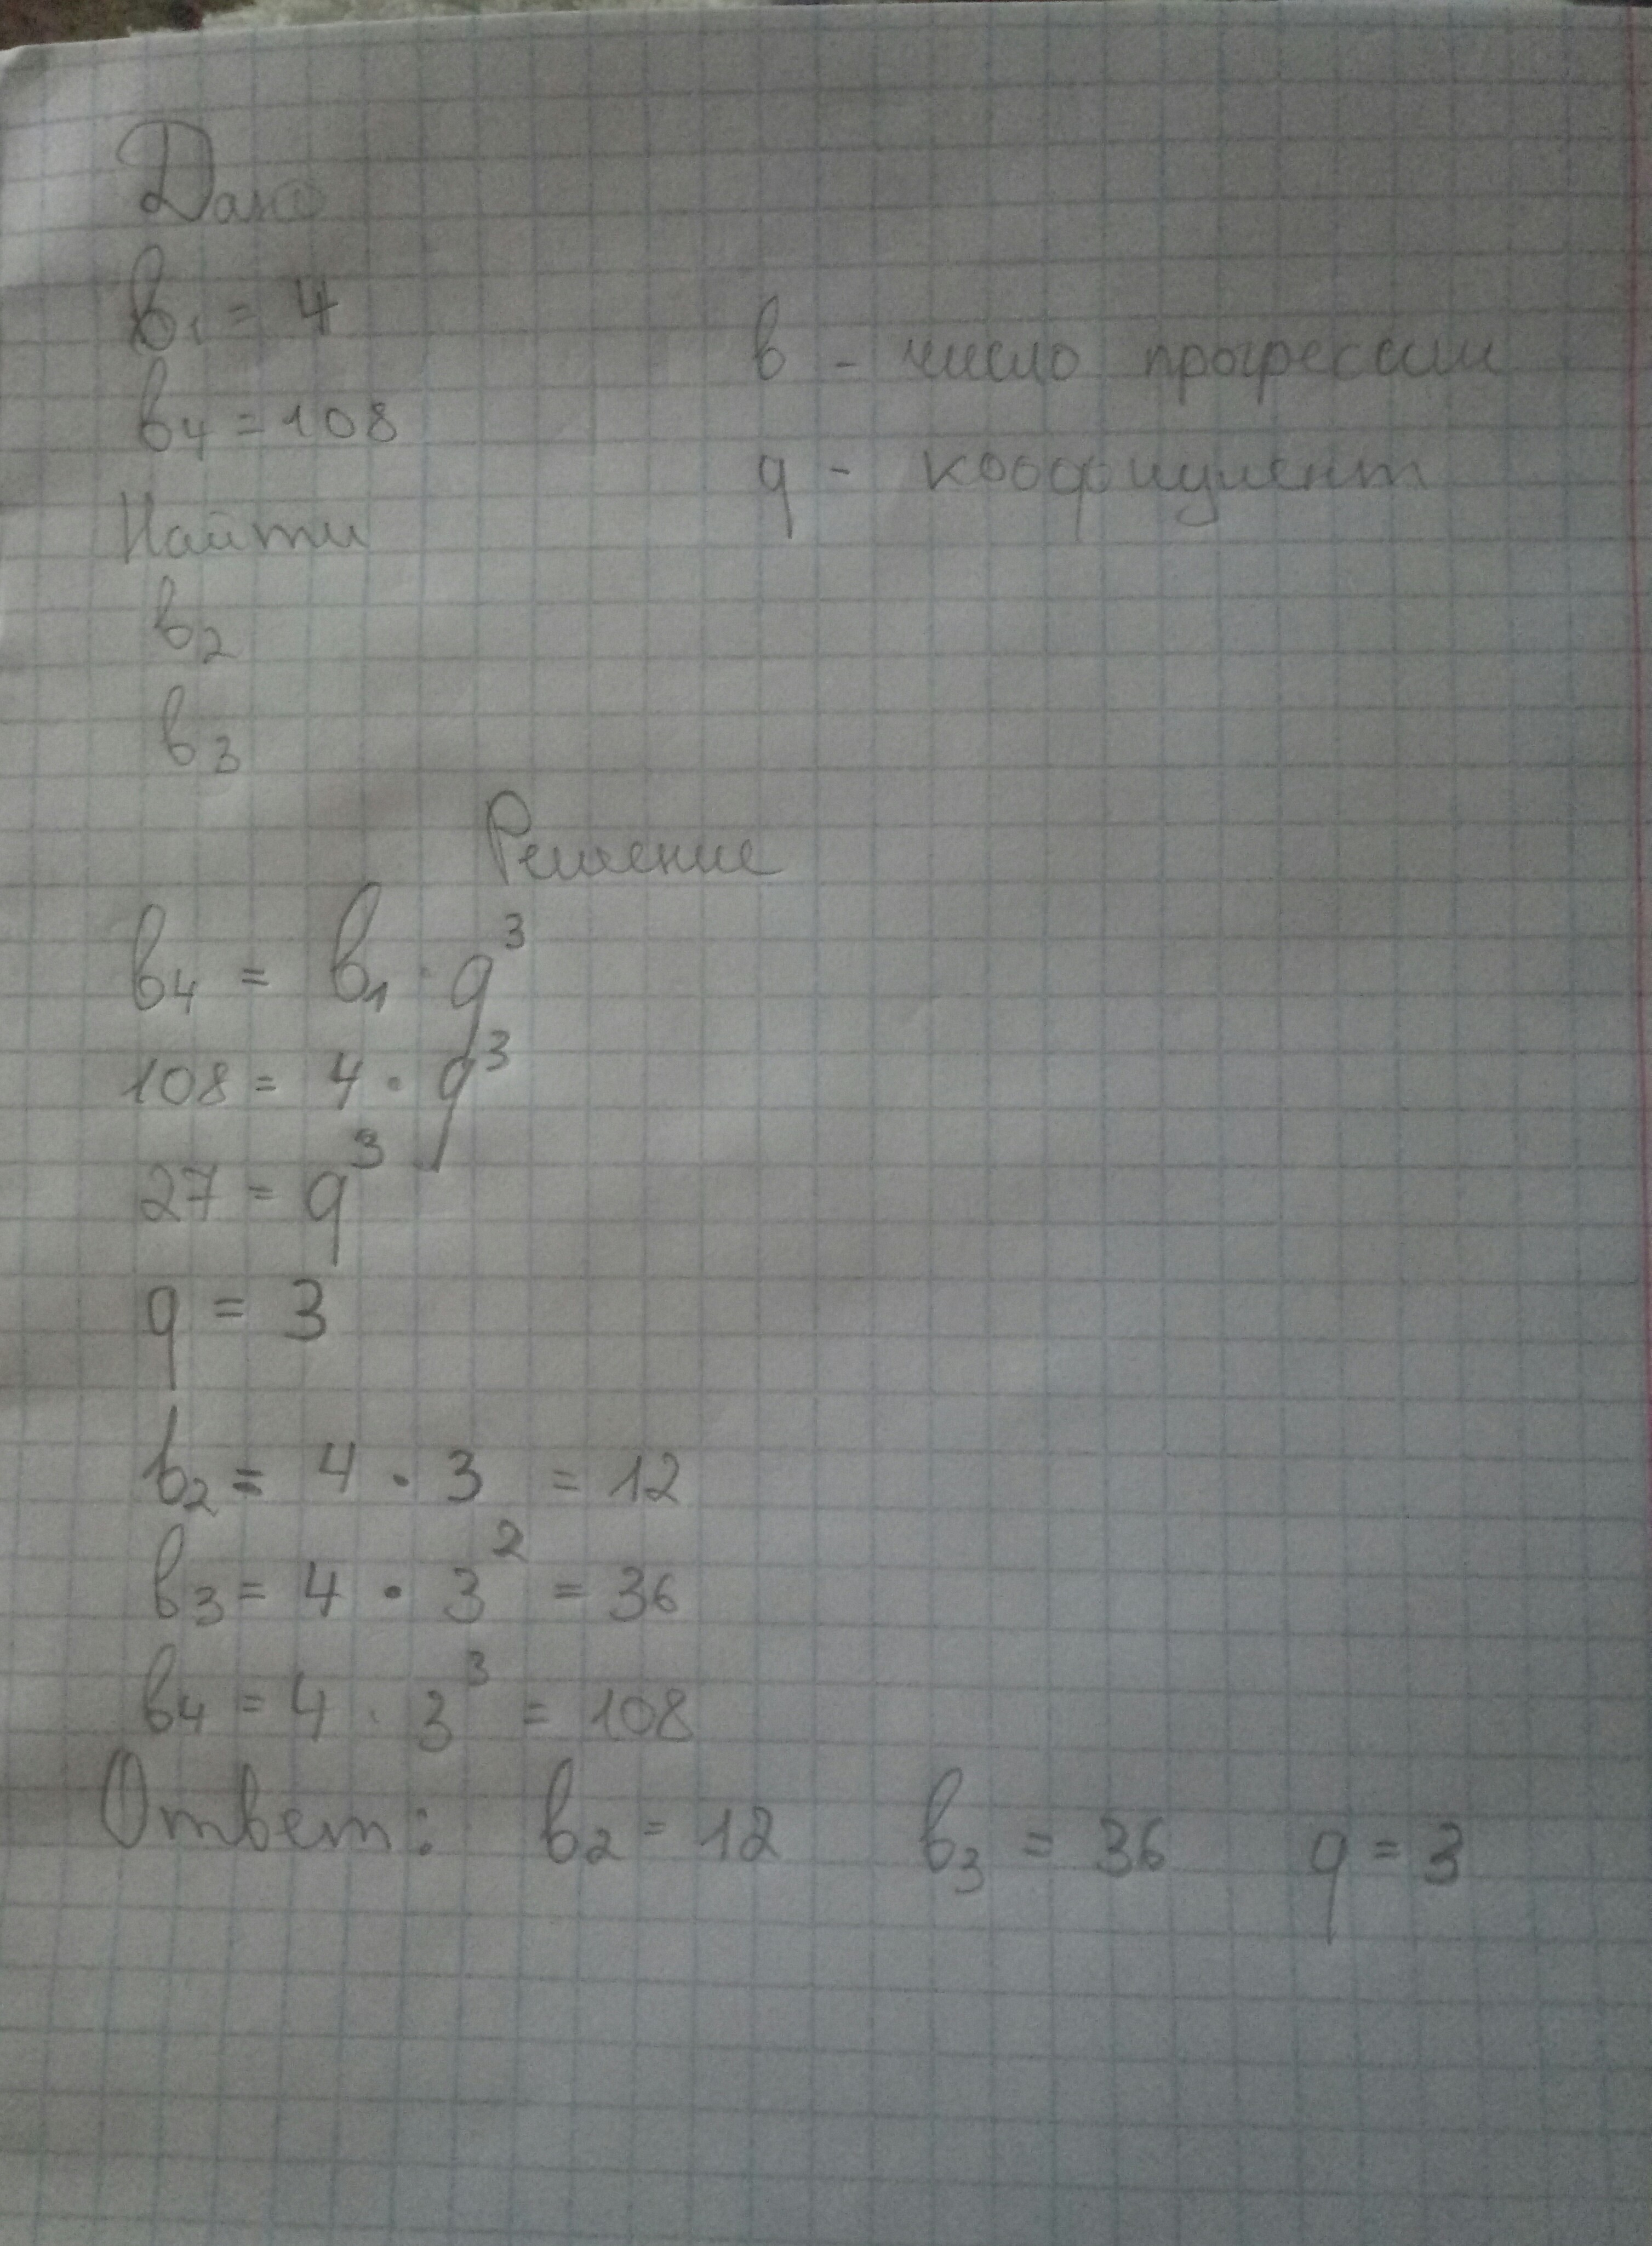 Дано
b₁ = 4
b₄ = 108
b - число прогрессии
q - коофициент
Найти
b₂
b₃
Решение
b₄ = b₁ · q³
108 = 4 · q³
27 = q³
q = 3
b₂ = 4 · 3 = 12
b₃ = 4 · 3² = 36
b₄ = 4 · 3³ = 108
Ответ: b₂ = 12 b₃ = 36 q = 3